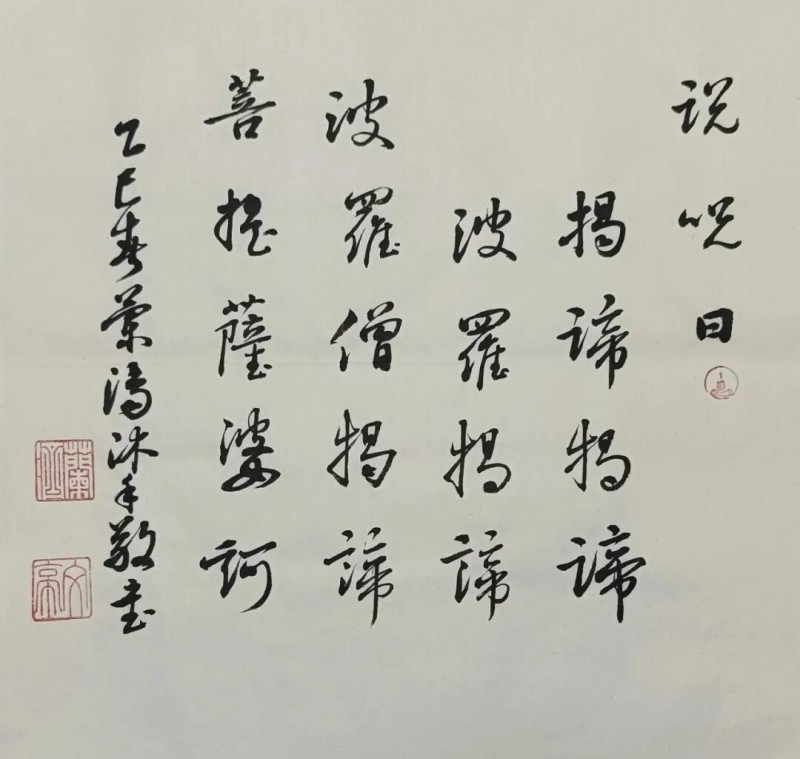 说咒曰
揭諦揭諦
波羅揭諦
波羅僧揭諦
菩提薩婆訶
乙巳春蘭馮沐手敬書